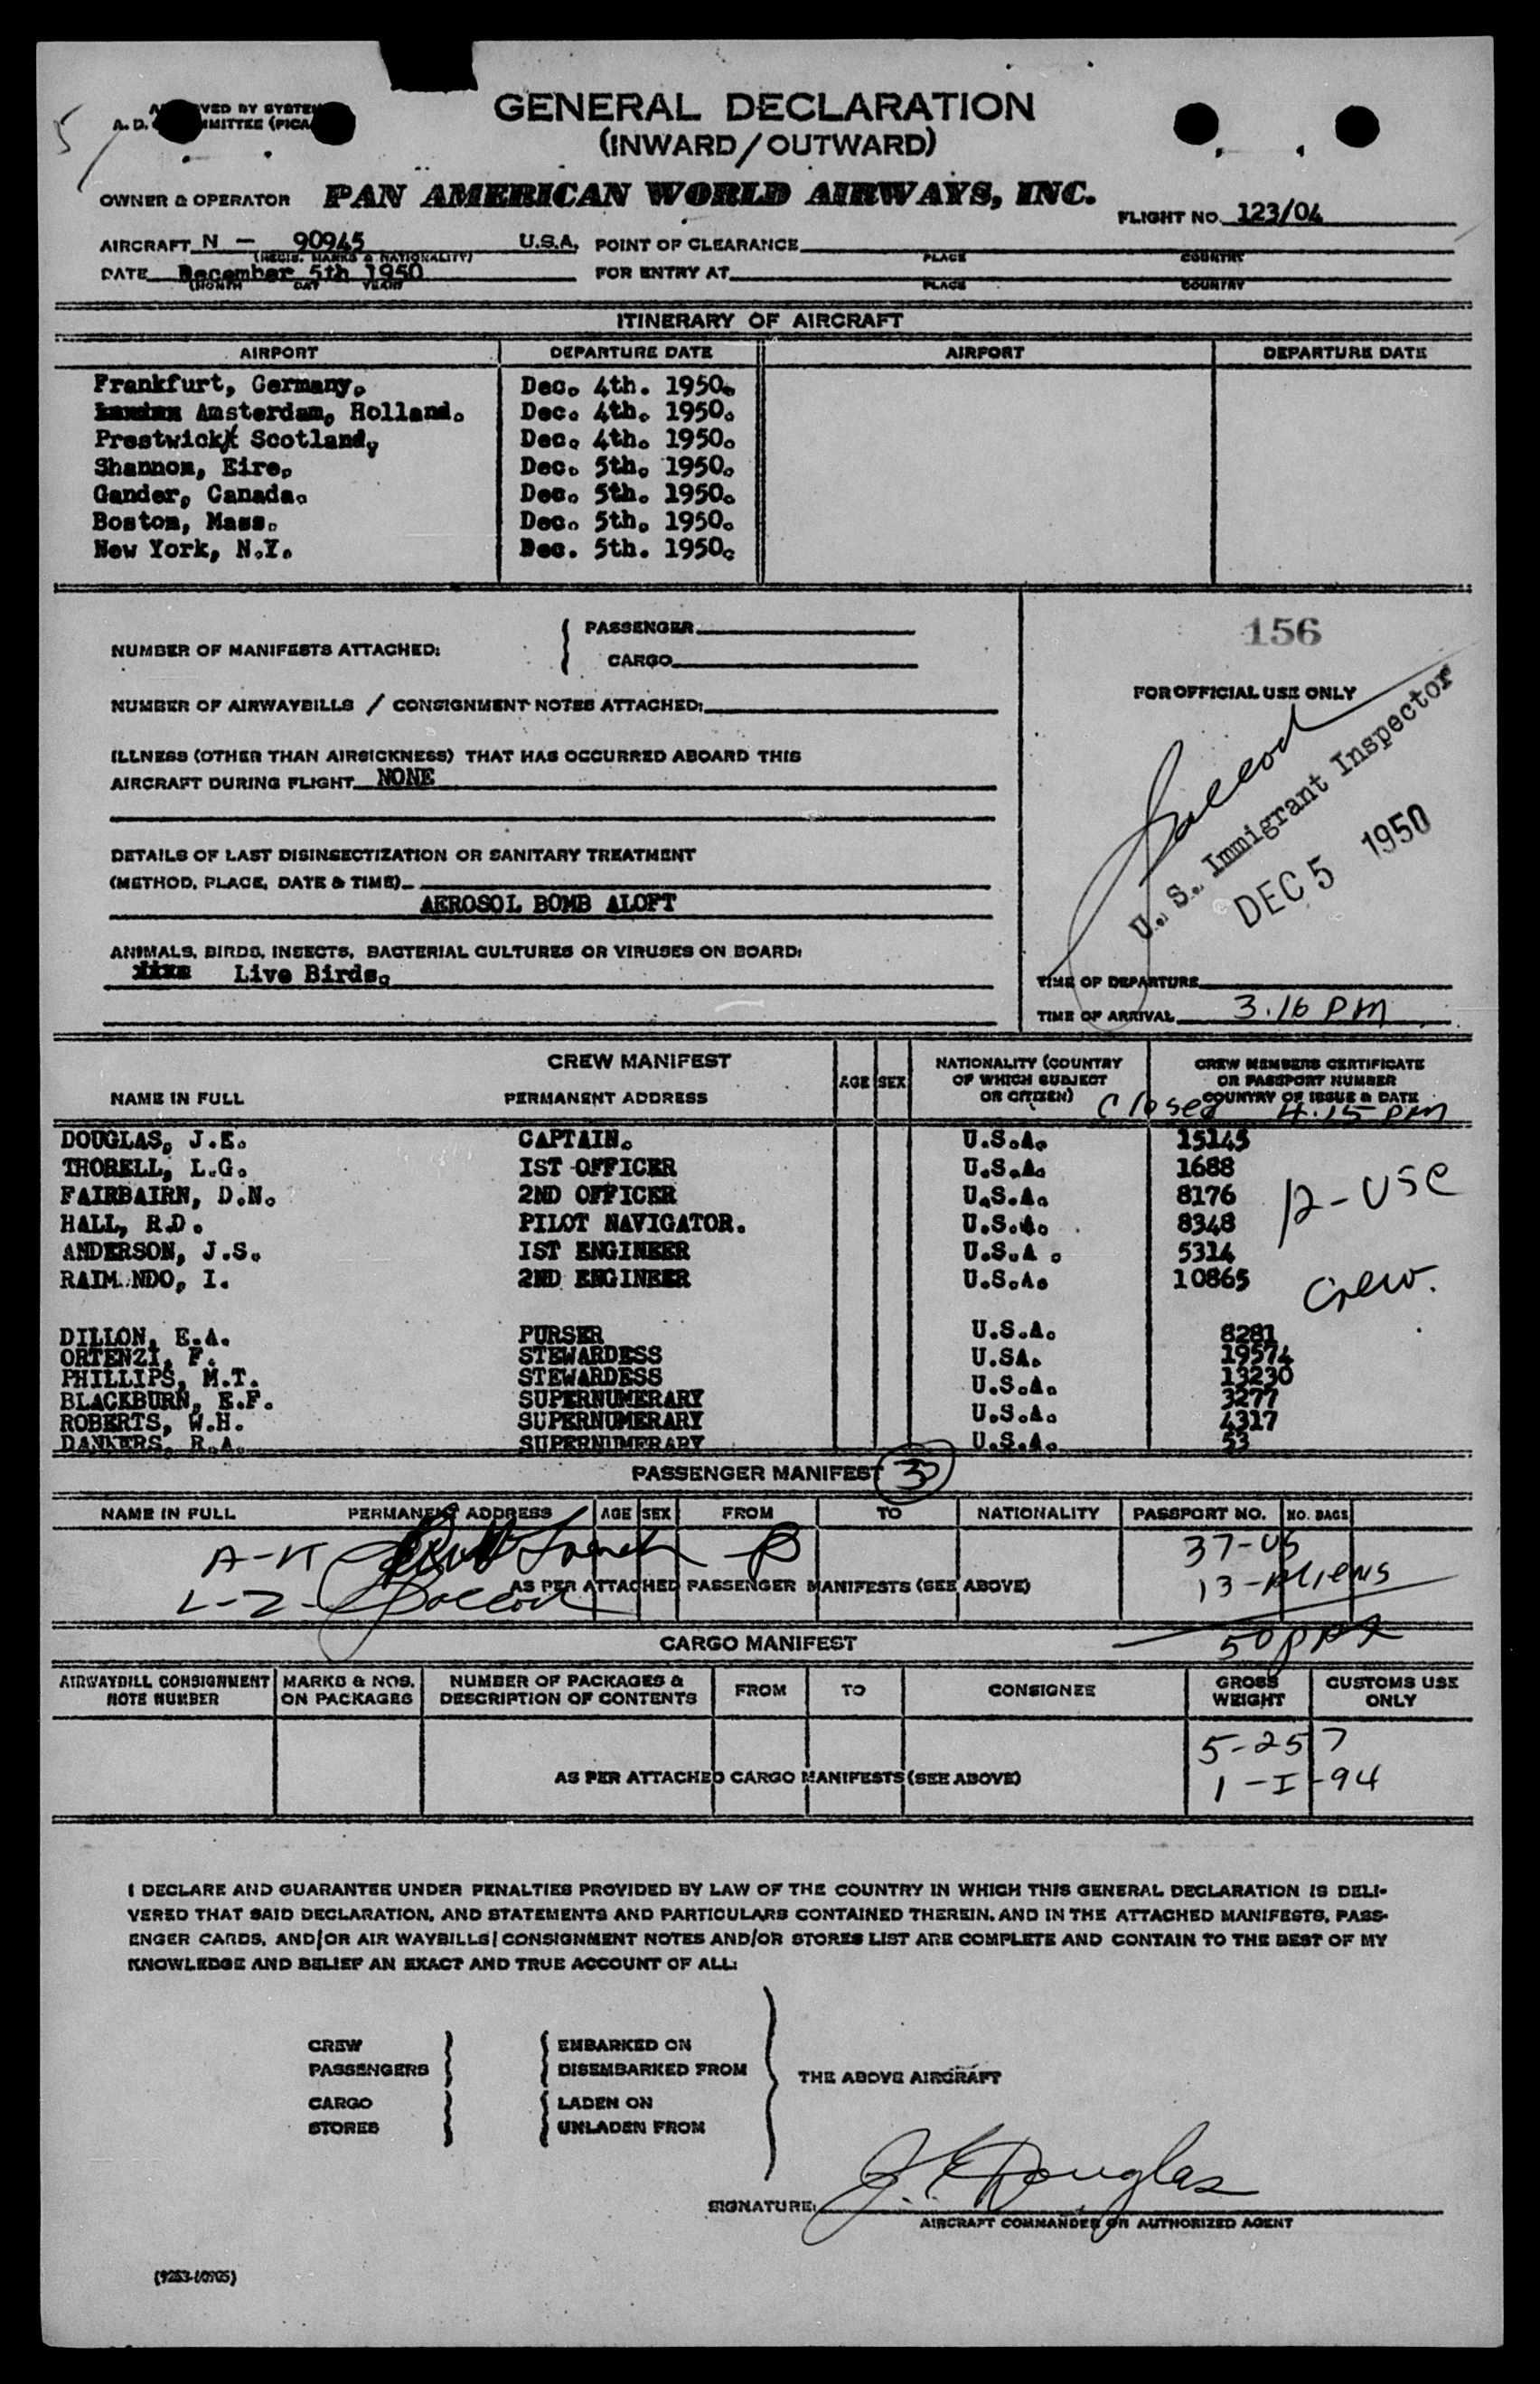 GENERAL DECLARATION
(INWARD/OUTWARD)
OWNER & OPERATOR PAN AMERICAN WORLD AIRWAYS, INC.
FLIGHT NO. 123/04
AIRCRAFT N - 90945 U.S.A. POINT OF CLEARANCE
(REGIS. MARKS & NATIONALITY) PLACE COUNTRY
DATE December 5th 1950 FOR ENTRY AT
(MONTH DAY YEAR) PLACE COUNTRY
ITINERARY OF AIRCRAFT
AIRPORT DEPARTURE DATE AIRPORT DEPARTURE DATE
Frankfurt, Germany. Dec. 4th. 1950.
Amsterdam, Holland. Dec. 4th. 1950.
Prestwick Scotland, Dec. 4th. 1950.
Shannon, Eire. Dec. 5th. 1950.
Gander, Canada. Dec. 5th. 1950.
Boston, Mass. Dec. 5th. 1950.
New York, N.Y. Dec. 5th. 1950.
156
NUMBER OF MANIFESTS ATTACHED: { PASSENGER
CARGO
FOR OFFICIAL USE ONLY
NUMBER OF AIRWAYBILLS / CONSIGNMENT NOTES ATTACHED:
ILLNESS (OTHER THAN AIRSICKNESS) THAT HAS OCCURRED ABOARD THIS
AIRCRAFT DURING FLIGHT NONE
U. S. Immigrant Inspector
DEC 5 1950
DETAILS OF LAST DISINSECTIZATION OR SANITARY TREATMENT
(METHOD, PLACE, DATE & TIME)
AEROSOL BOMB ALOFT
ANIMALS, BIRDS, INSECTS, BACTERIAL CULTURES OR VIRUSES ON BOARD:
Live Birds.
TIME OF DEPARTURE
TIME OF ARRIVAL 3.16 PM
CREW MANIFEST
NAME IN FULL PERMANENT ADDRESS AGE SEX NATIONALITY (COUNTRY OF WHICH SUBJECT OR CITIZEN) CREW MEMBERS CERTIFICATE OR PASSPORT NUMBER COUNTRY OF ISSUE & DATE
Closed 4.15 PM
DOUGLAS, J.E. CAPTAIN. U.S.A. 15145
THORELL, L.G. IST OFFICER U.S.A. 1688
FAIRBAIRN, D.N. 2ND OFFICER U.S.A. 8176
12-USC
HALL, R.D. PILOT NAVIGATOR. U.S.A. 8348
ANDERSON, J.S. IST ENGINEER U.S.A. 5314
RAIM NDO, I. 2ND ENGINEER U.S.A. 10865
Crew.
DILLON, E.A. PURSER U.S.A. 8281
ORTENZI, F. STEWARDESS U.SA. 19574
PHILLIPS, M.T. STEWARDESS U.S.A. 13230
BLACKBURN, E.F. SUPERNUMERARY U.S.A. 3277
ROBERTS, W.H. SUPERNUMERARY U.S.A. 4317
DANKERS, R.A. SUPERNUMERARY U.S.A. 53
PASSENGER MANIFEST
NAME IN FULL PERMANENT ADDRESS AGE SEX FROM TO NATIONALITY PASSPORT NO. NO. BAGS
A-K 37-US
L-Z 13-Aliens
AS PER ATTACHED PASSENGER MANIFESTS (SEE ABOVE)
CARGO MANIFEST
AIRWAYBILL CONSIGNMENT NOTE NUMBER MARKS & NOS. ON PACKAGES NUMBER OF PACKAGES & DESCRIPTION OF CONTENTS FROM TO CONSIGNEE GROSS WEIGHT CUSTOMS USE ONLY
5-257
1-I-94
AS PER ATTACHED CARGO MANIFESTS (SEE ABOVE)
I DECLARE AND GUARANTEE UNDER PENALTIES PROVIDED BY LAW OF THE COUNTRY IN WHICH THIS GENERAL DECLARATION IS DELI-
VERED THAT SAID DECLARATION, AND STATEMENTS AND PARTICULARS CONTAINED THEREIN, AND IN THE ATTACHED MANIFESTS, PASS-
ENGER CARDS, AND/OR AIR WAYBILLS/CONSIGNMENT NOTES AND/OR STORES LIST ARE COMPLETE AND CONTAIN TO THE BEST OF MY
KNOWLEDGE AND BELIEF AN EXACT AND TRUE ACCOUNT OF ALL:
CREW EMBARKED ON
PASSENGERS DISEMBARKED FROM
THE ABOVE AIRCRAFT
CARGO LADEN ON
STORES UNLADEN FROM
SIGNATURE: J. E. Douglas
AIRCRAFT COMMANDER OR AUTHORIZED AGENT